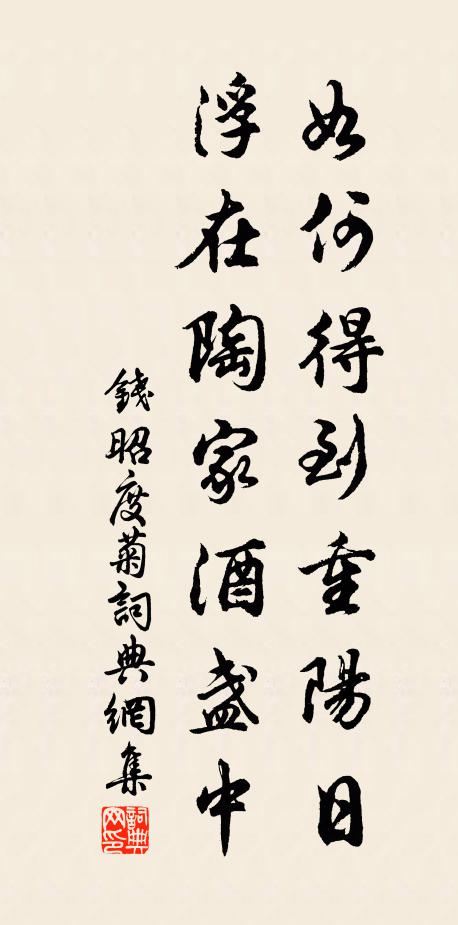 如何得到重陽日
浮在陶家酒盏中
錢昭度菊詞典網集
詞典
网印